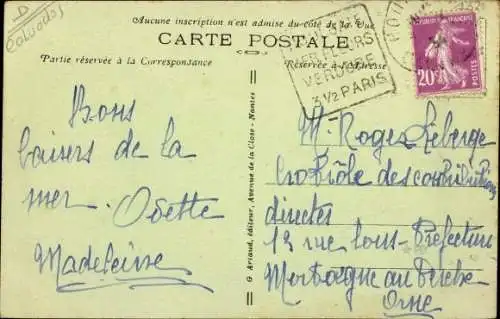 D
Calvados
Aucune inscription n'est admise du côté de la Vue
CARTE POSTALE
Partie réservée à la Correspondance
Réservée à l'Adresse
VERDURE
3½ PARIS
20c
POSTES
Bons
baisers de la
mer. Odette
Madeleine
G. Artaud, éditeur, Avenue de la Close - Nantes
M. Roger Leberge
Controle des contributions
directes
12 rue Sous-Préfecture
Mortagne au Perche
Orne